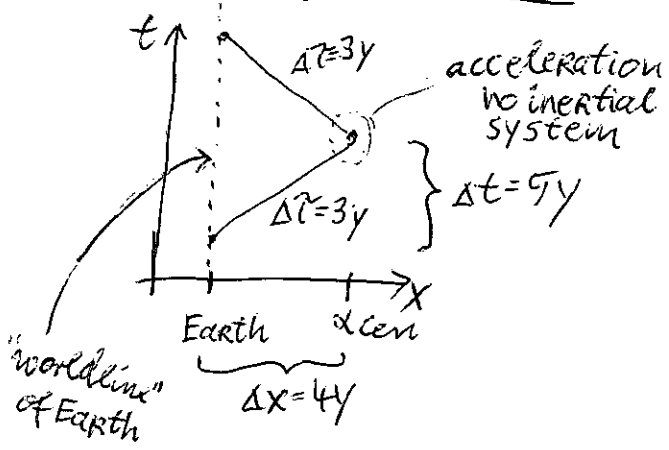 t
Δτ=3y
acceleration
no inertial
system
Δτ=3y
Δt=5y
x
Earth
αcen
"worldline"
of Earth
Δx=4y